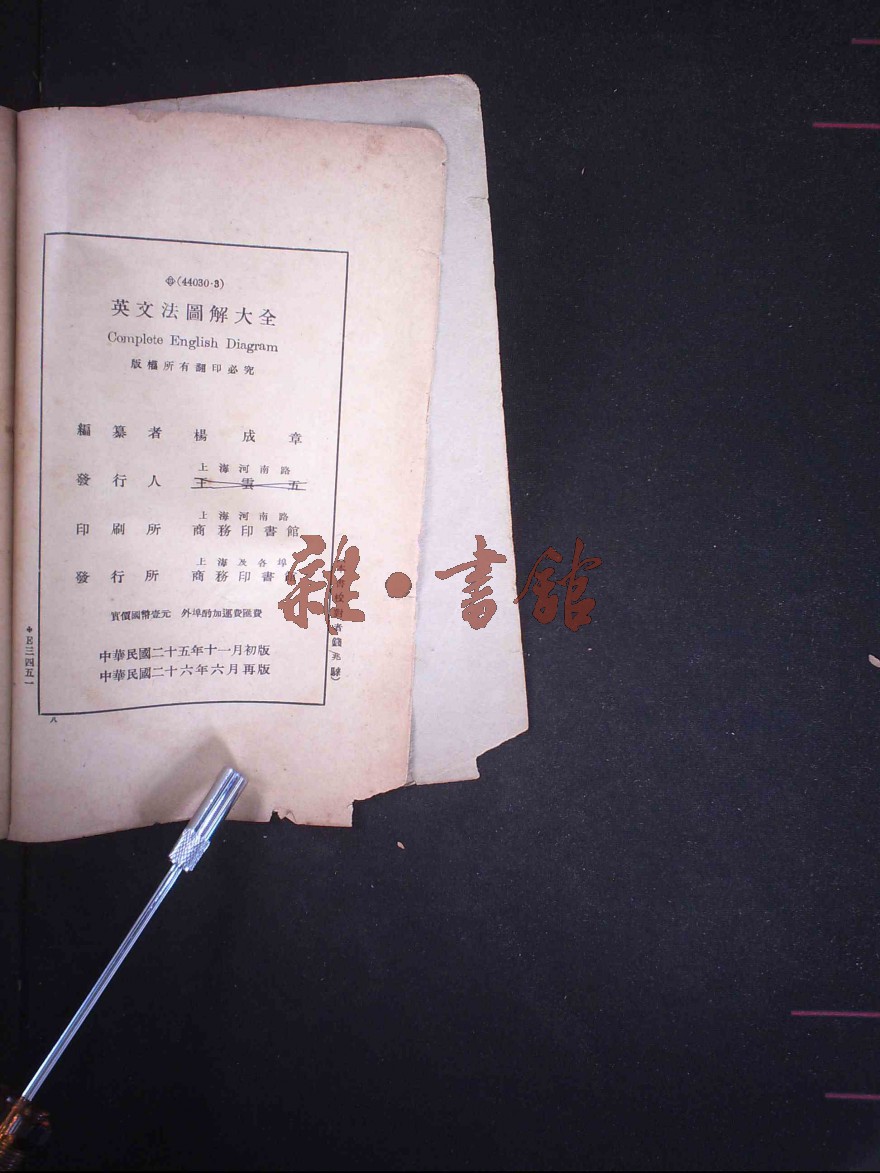 (44030·3)
英文法圖解大全
Complete English Diagram
版權所有翻印必究
編纂者 楊成章
上海河南路
發行人 王雲五
上海河南路
印刷所 商務印書館
上海及各埠
發行所 商務印書館
實價國幣壹元 外埠酌加運費匯費
中華民國二十五年十一月初版
中華民國二十六年六月再版
E三四五一
八
書校對者錢兆
雜·書館